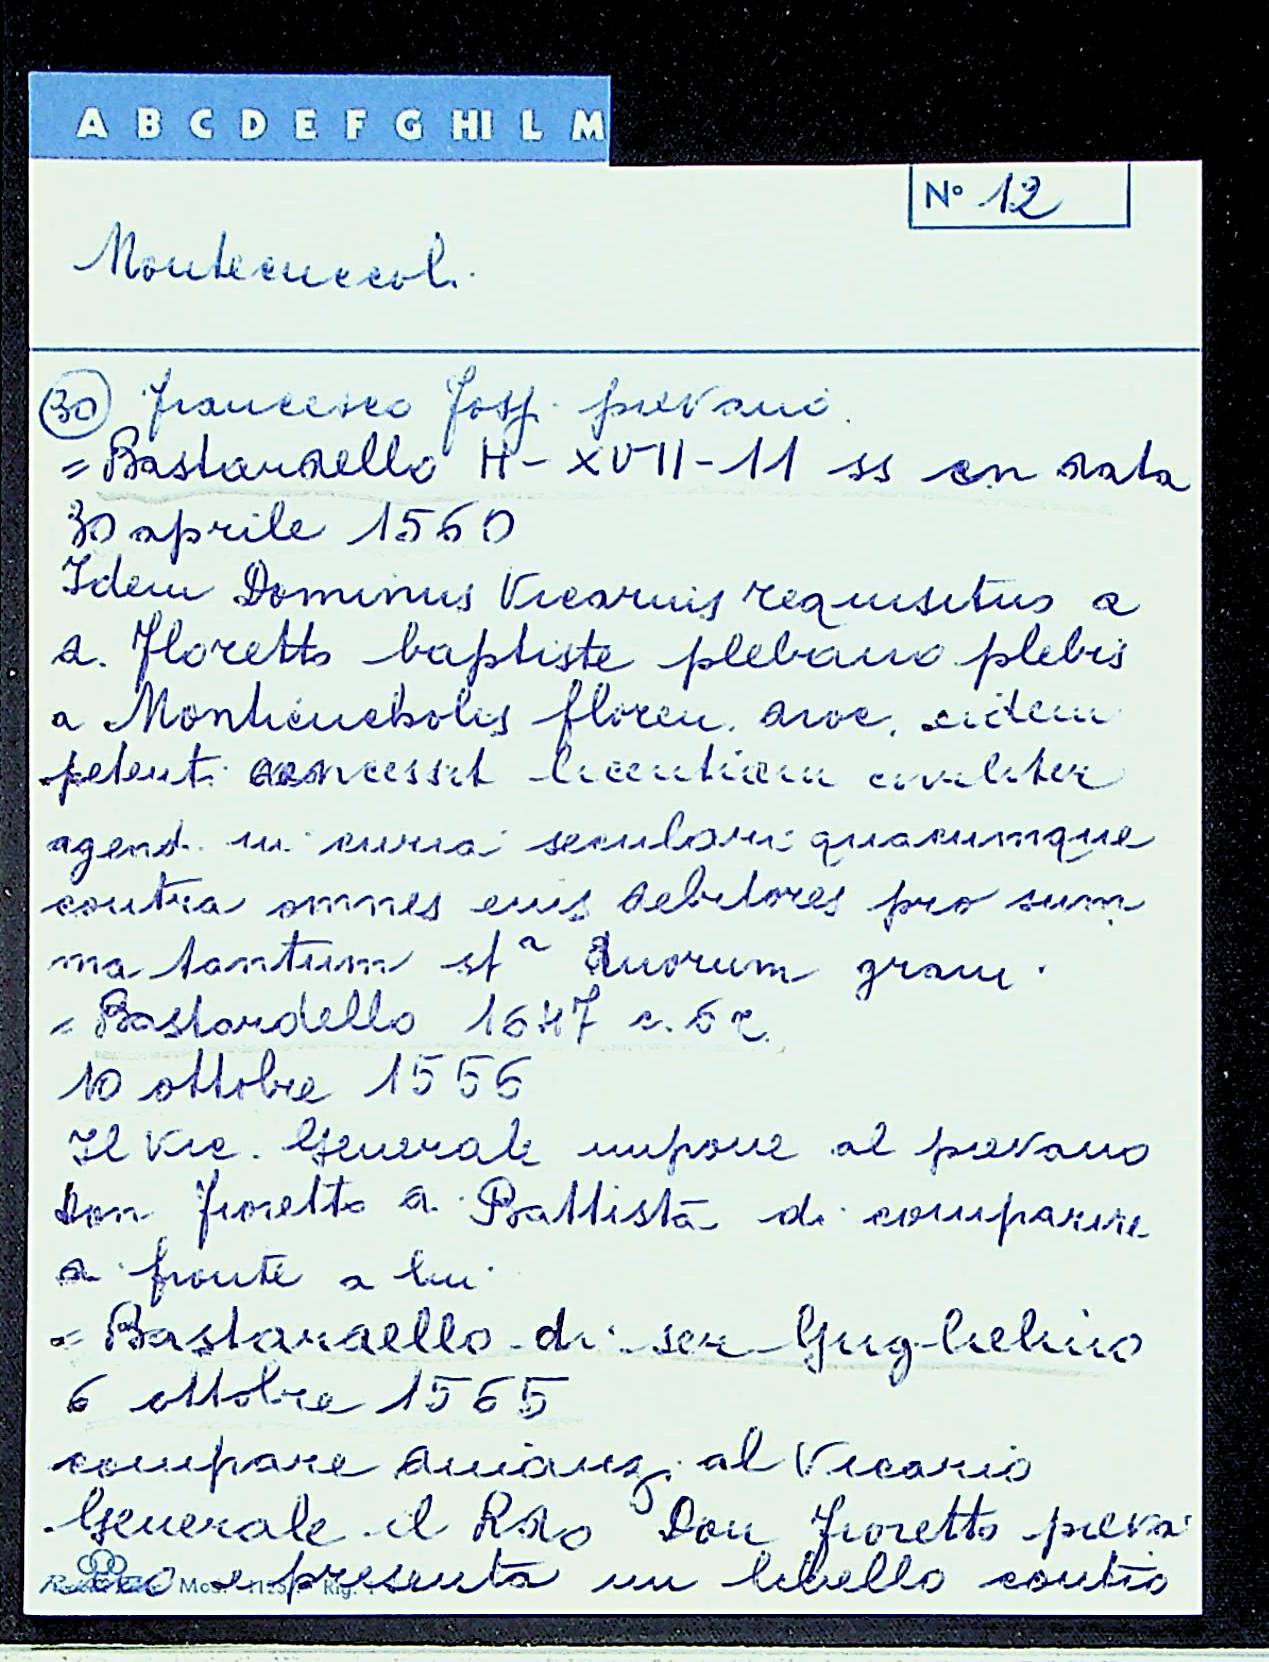 A B C D E F G HI L M
Nº 12
Montecuccoli
30 Francesco pievano
= Bastardello H-XVII-11 ss in data
30 aprile 1560
Idem Dominus Vicarius requisitus a
d. Floretto baptiste plebano plebis
a Montecucholis floren. dioc. eidem
petent. concessit licentiam civiliter
agend. in curia seculari quacumque
contra omnes eius debitores pro sum
ma tantum grani.
= Bastardello 1647 c. 6 r.
10 ottobre 1556
Il Vic. Generale impone al pievano
Don Fioretto d. Battista di comparire
di fronte a lui
= Bastardello di ser Guglielmo
6 ottobre 1565
compare dinanz. al Vicario
Generale il Rdo Don Fioretto pieva
no e presenta un libello contro